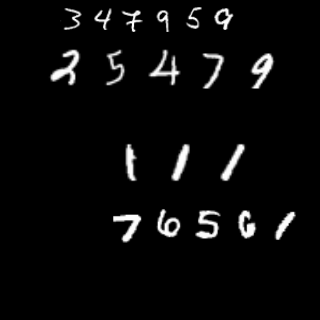 347959
25479
111
76561